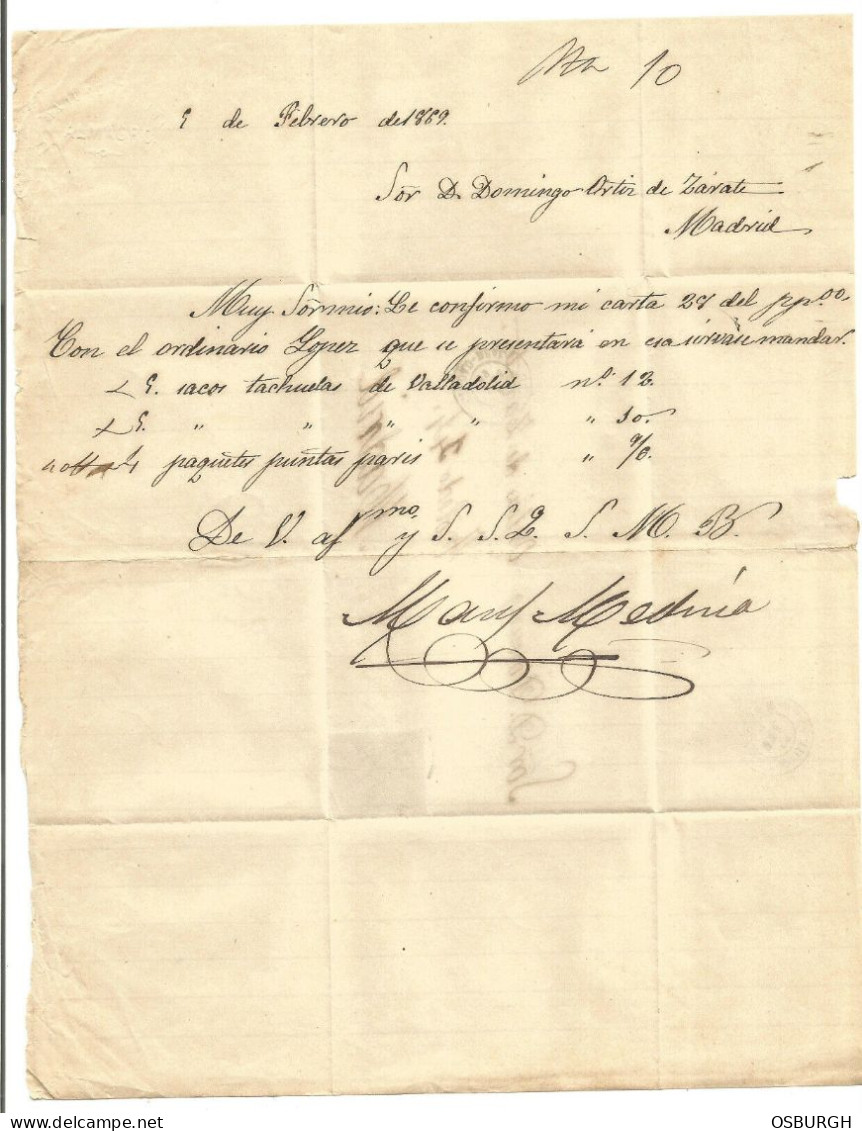 10
5 de Febrero de 1869.
Sor D. Domingo Ortiz de Zárate
Madrid
Muy Sor mio: Le confirmo mi carta 27 del pp.do
Con el ordinario Lopez que se presentará en esa sirvase mandar.
5. sacos tachuelas de Valladolid nº. 12.
5. " " " " " 10.
paquetes puntas paris "
De V. afmo. y S. S. Q. S. M. B.
Manl. Medina
OSBURGH